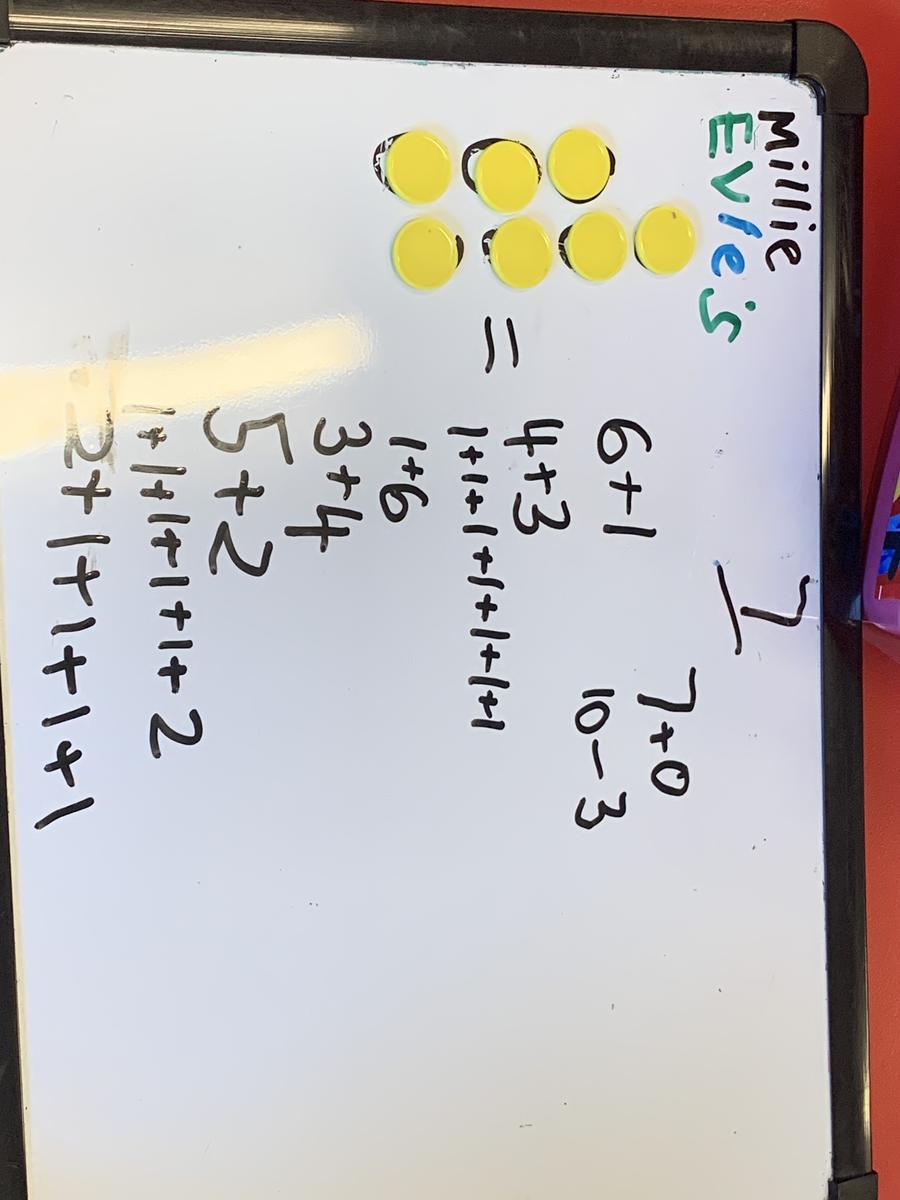 Millie
Evie's
7
6+1
7+0
10-3
=
4+3
1+1+1+1+1+1+1
1+6
3+4
5+2
1+1+1+1+1+2
2+1+1+1+1